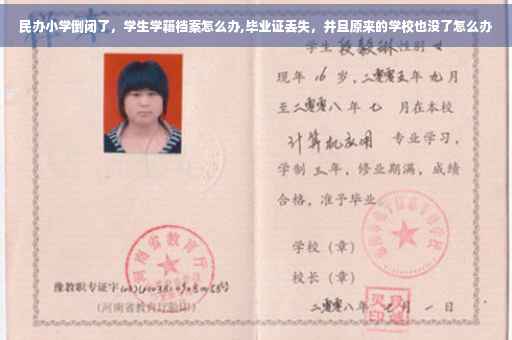 民办小学倒闭了，学生学籍档案怎么办,毕业证丢失，并且原来的学校也没了怎么办
学生 段毅琳 性别 女
现年 16 岁，二零零五年 九 月
至二零零八年 七 月在本校
计算机应用 专业学习，
学制 三 年，修业期满，成绩
合格，准予毕业
学校（章）
校长（章）
河南省教育厅
豫教职专证字
（河南省教育厅验印）
二零零八年 七 月 一 日